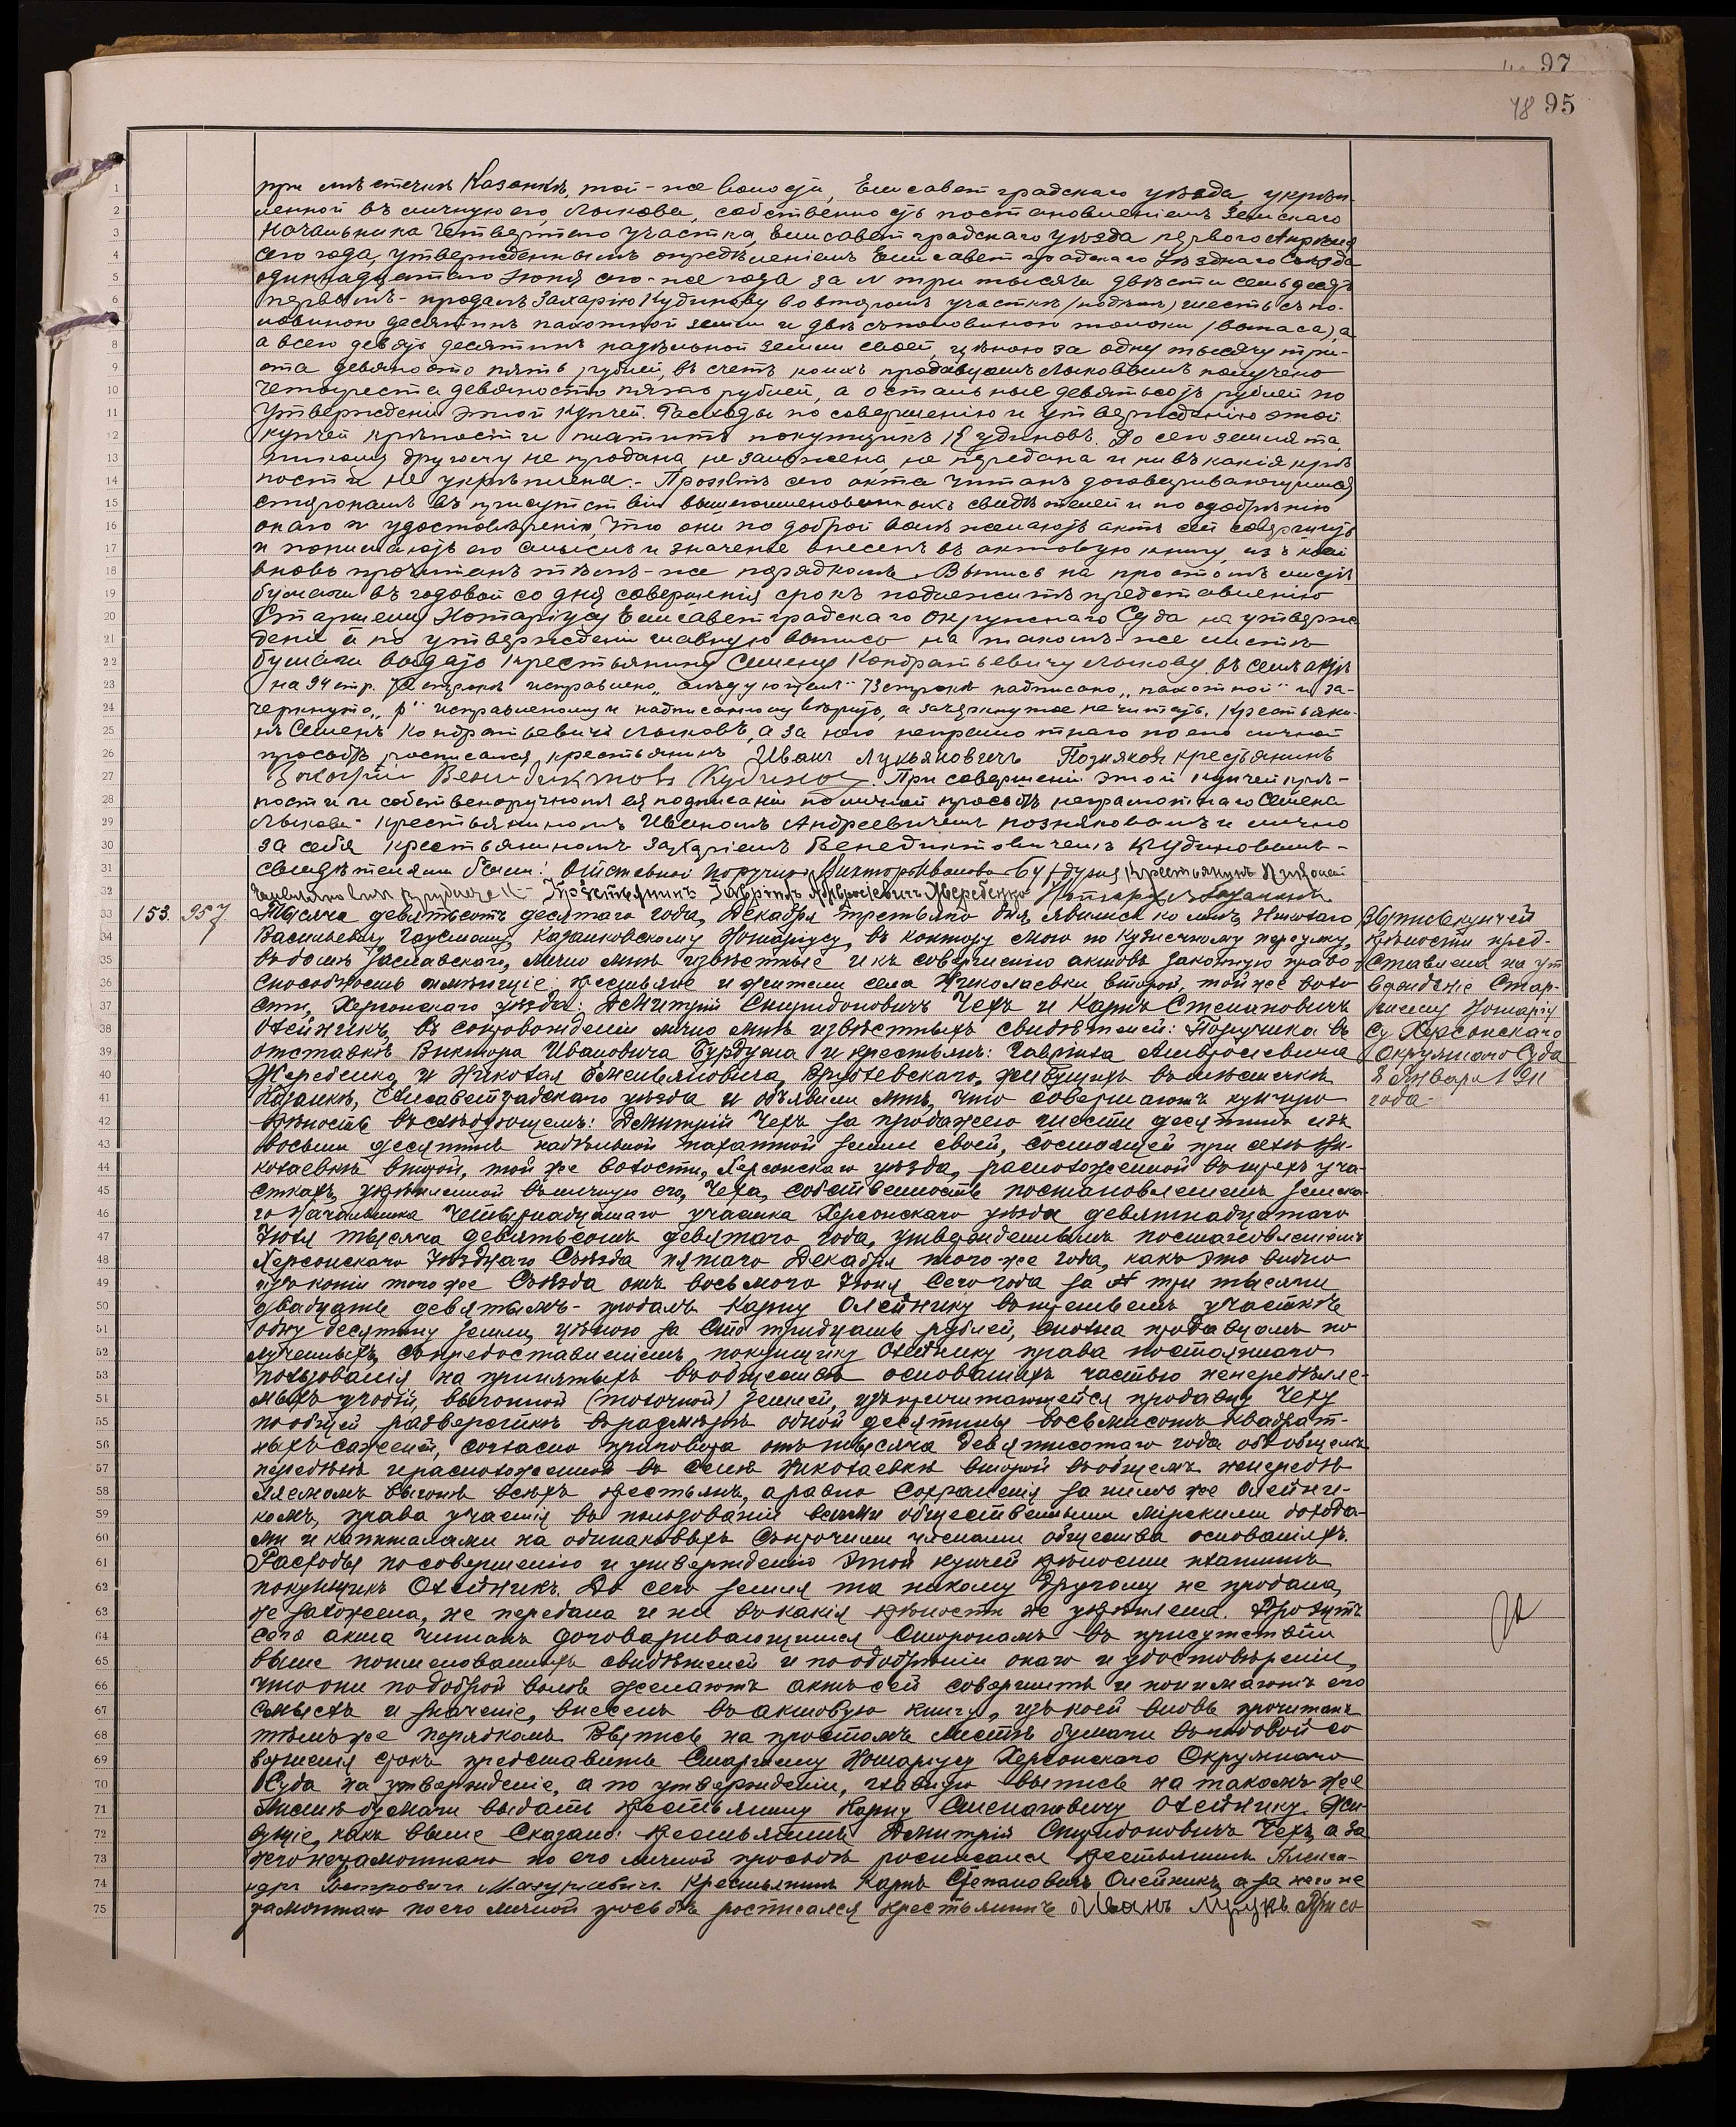 97
78 95
при мѣстечкѣ Казанкѣ, той-же волости, Елисаветградскаго уѣзда, укрѣп-
ленной въ личную его, Лыкова, собственность постановленіемъ Земскаго
Начальника Четвертаго участка, Елисаветградскаго уѣзда перваго Апрѣля
сего года, утвержденнымъ опредѣленіемъ Елисаветградскаго Уѣзднаго Съѣзда
одиннадцатаго Іюня сего-же года за № три тысячи двѣсти семьдесятъ
первымъ - продалъ Захарію Кудинову во второмъ участкѣ шесть съ по-
ловиною десятинъ пахотной земли и двѣ съ половиною толоки (выпаса), а
а всего девять десятинъ надѣльной земли своей, цѣною за одну тысячу три-
ста девяносто пять рублей, въ счетъ коихъ продавцомъ Лыковымъ получено
четыреста девяносто пять рублей, а остальные девятьсотъ рублей по
утвержденіи этой купчей. Расходы по совершенію и утвержденію этой
купчей крѣпости платитъ покупщикъ Кудиновъ. До сего земля та
никому другому не продана, не заложена, не передана и ни въ какія крѣ-
пости не укрѣплена. - Проэктъ сего акта читанъ договаривающимся
сторонамъ въ присутствіи вышепоименованныхъ свидѣтелей и по одобреніи
онаго и удостовѣреніи, что они по доброй волѣ желаютъ актъ сей совершить
и понимаютъ его смыслъ и значеніе внесенъ въ актовую книгу, изъ коей
вновь прочитанъ тѣмъ-же порядкомъ. Выпись на простомъ листѣ
бумаги въ годовой со дня совершенія срокъ подлежитъ представленію
Старшему Нотаріусу Елисаветградскаго Окружнаго Суда на утверж-
деніе и по утвержденіи главную выпись на такомъ-же листѣ
бумаги выдать крестьянину Семену Кондратьевичу Лыкову. Въ семъ актѣ
на 94 стр. 72 строкѣ исправлено „слѣдующемъ" 73 строкѣ надписано „пахотной" и за-
черкнуто „р" исправленому и надписанному вѣрить, а зачеркнутое не читать. Крестьяни-
нъ Семенъ Кондратьевичъ Лыковъ, а за него неграмотнаго по его личной
просьбѣ росписался крестьянинъ Иванъ Лукьяновичъ Позняков крестьянинъ
Захарій Венидиктовъ Кудинов. При совершеніи этой купчей крѣ-
пости и собственоручномъ ея подписаніи по личной просьбѣ неграмотнаго Семена
Лыкова - крестьяниномъ Иваномъ Андреевичемъ Позняковымъ и лично
за себя крестьяниномъ Захаріемъ Бенедиктовичемъ Кудиновымъ -
свидѣтелями были: Отставной поручикъ Викторъ Иванова Бурдуже, Крестьянинъ Николай
Крестьянинъ Гавріилъ Амвросіевичъ Жеребенко Нотаріусъ
153. 957 Тысяча девятьсотъ десятаго года, Декабря третьяго дня, явились ко мнѣ, Николаю
Васильевичу Гаусману, Казанковскому Нотаріусу, въ контору мою по Кузнечному переулку,
въ домѣ Заславскаго, лично мнѣ извѣстные и къ совершенію актовъ законную право-
способность имѣющіе крестьяне и жители села Николаевки второй, той же воло-
сти, Херсонскаго уѣзда: Дмитрій Спиридоновичъ Чехъ и Карпъ Степановичъ
Олейникъ, въ сопровожденіи лично мнѣ извѣстныхъ свидѣтелей: Поручика въ
отставкѣ Виктора Ивановича Бурдужа и крестьянъ: Гавріила Амвросіевича
Жеребенко и Николая Емельяновича Врублевскаго, живущихъ въ мѣстечкѣ
Казанкѣ, Елисаветградскаго уѣзда и объявили мнѣ, что совершаютъ купчую
крѣпость въ слѣдующемъ: Дмитрій Чехъ за продажею шести десятинъ изъ
восьми десятинъ надѣльной пахатной земли своей, состоящей при селѣ Ни-
колаевкѣ второй, той же волости, Херсонскаго уѣзда, расположенной въ трехъ уча-
сткахъ, укрѣпленной въ личную его, Чеха, собственность постановленіемъ Земска-
го Начальника Четырнадцатаго участка Херсонскаго уѣзда девятнадцатаго
Іюля тысяча девятьсотъ девятаго года, утвержденнымъ постановленіемъ
Херсонскаго Уѣзднаго Съѣзда пятаго Декабря того же года, какъ это видно
изъ копіи того же Съѣзда отъ восьмого Іюня сего года за № три тысячи
двадцать девятымъ - продалъ Карпу Олейнику въ третьемъ участкѣ
одну десятину земли, цѣною за сто тридцать рублей, сполна продавцомъ по
лученныхъ, съ предоставленіемъ покупщику Олейнику права постояннаго
пользованія на принятыхъ въ обществѣ основаніяхъ частью непередѣляе-
мыхъ угодій, выгонной (толочной) землей, изъ причитающейся продавцу Чеху
по общей разверсткѣ въ размѣрѣ одной десятины восьмисотъ квадрат-
ныхъ саженей, согласно приговора отъ тысяча девятисотаго года объ общемъ
передѣлѣ и расположенной въ селѣ Николаевкѣ второй въ общемъ непередѣ
ляемомъ выгонѣ всѣхъ крестьянъ, а равно сохраненія за нимъ же Олейни-
комъ, права участія въ пользованіи всѣми общественными мірскими дохода-
ми и капиталами на одинаковыхъ съ прочими членами общества основаніяхъ.
Расходы по совершенію и утвержденію этой купчей крѣпости платитъ
покупщикъ Олейникъ. До сего земля та никому другому не продана,
не заложена, не передана и ни въ какія крѣпости не укрѣплена. Проэктъ
сего акта читанъ договаривающимся сторонамъ въ присутствіи
выше поименованныхъ свидѣтелей и по одобреніи онаго и удостовѣреніи,
что они по доброй волѣ желаютъ актъ сей совершить и понимаютъ его
смыслъ и значеніе, внесенъ въ актовую книгу, изъ коей вновь прочитанъ
тѣмъ же порядкомъ. Выпись на простомъ листѣ бумаги въ годовой со
вершенія срокъ представить Старшему Нотаріусу Херсонскаго Окружнаго
Суда на утвержденіе, а по утвержденіи, главную выпись на такомъ же
листѣ бумаги выдать крестьянину Карпу Степановичу Олейнику. Жи-
вущіе, какъ выше сказано: крестьянинъ Дмитрій Спиридоновичъ Чехъ, а за
него неграмотнаго по его личной просьбѣ росписался крестьянинъ Алекса-
ндръ Петровичъ Мазуркевичъ Крестьянинъ Карпъ Степановичъ Олейникъ, а за него не
грамотнаго по его личной просьбѣ росписался крестьянинъ Иванъ При со
Выпись купчей
крѣпости пред-
ставлена на ут
вержденіе Стар-
шему Нотаріу
су Херсонскаго
Окружнаго Суда
8 Января 1911
года -